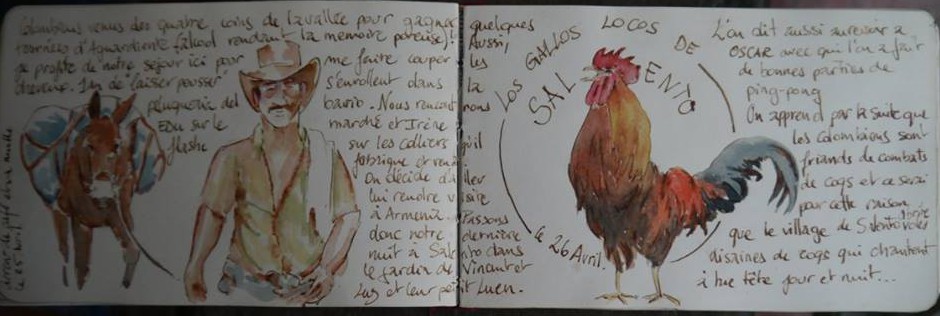 Colombiens venus des quatre coins de la vallée pour gagner quelques
tournées d'Aguardiente (alcool rendant la mémoire poreuse). Aussi,
je profite de notre séjour ici pour me faire couper les
cheveux. J'en ai laissé pousser s'enrollent dans la
péluquerie del barrio. Nous rencont nous
Edu sur le marché et Irène
flashe sur les colliers qu'il
fabrique et
On décide d'aller
lui rendre visite
à Armenia. Passons
donc notre dernière
nuit à Salento dans
le jardin de Vincent et
Luz et leur petit Luen.
le 25 Avril
LOS GALLOS LOCOS DE
SALENTO
le 26 Avril.
L'on dit aussi aurevoir à
OSCAR avec qui l'on a fait
de bonnes parties de
ping-pong
On apprend par la suite que
les Colombiens sont
friands de combats
de coqs et ce serait
pour cette raison
que le village de Salento abrite des
disaines de coqs qui chantent
à tue tête jour et nuit...